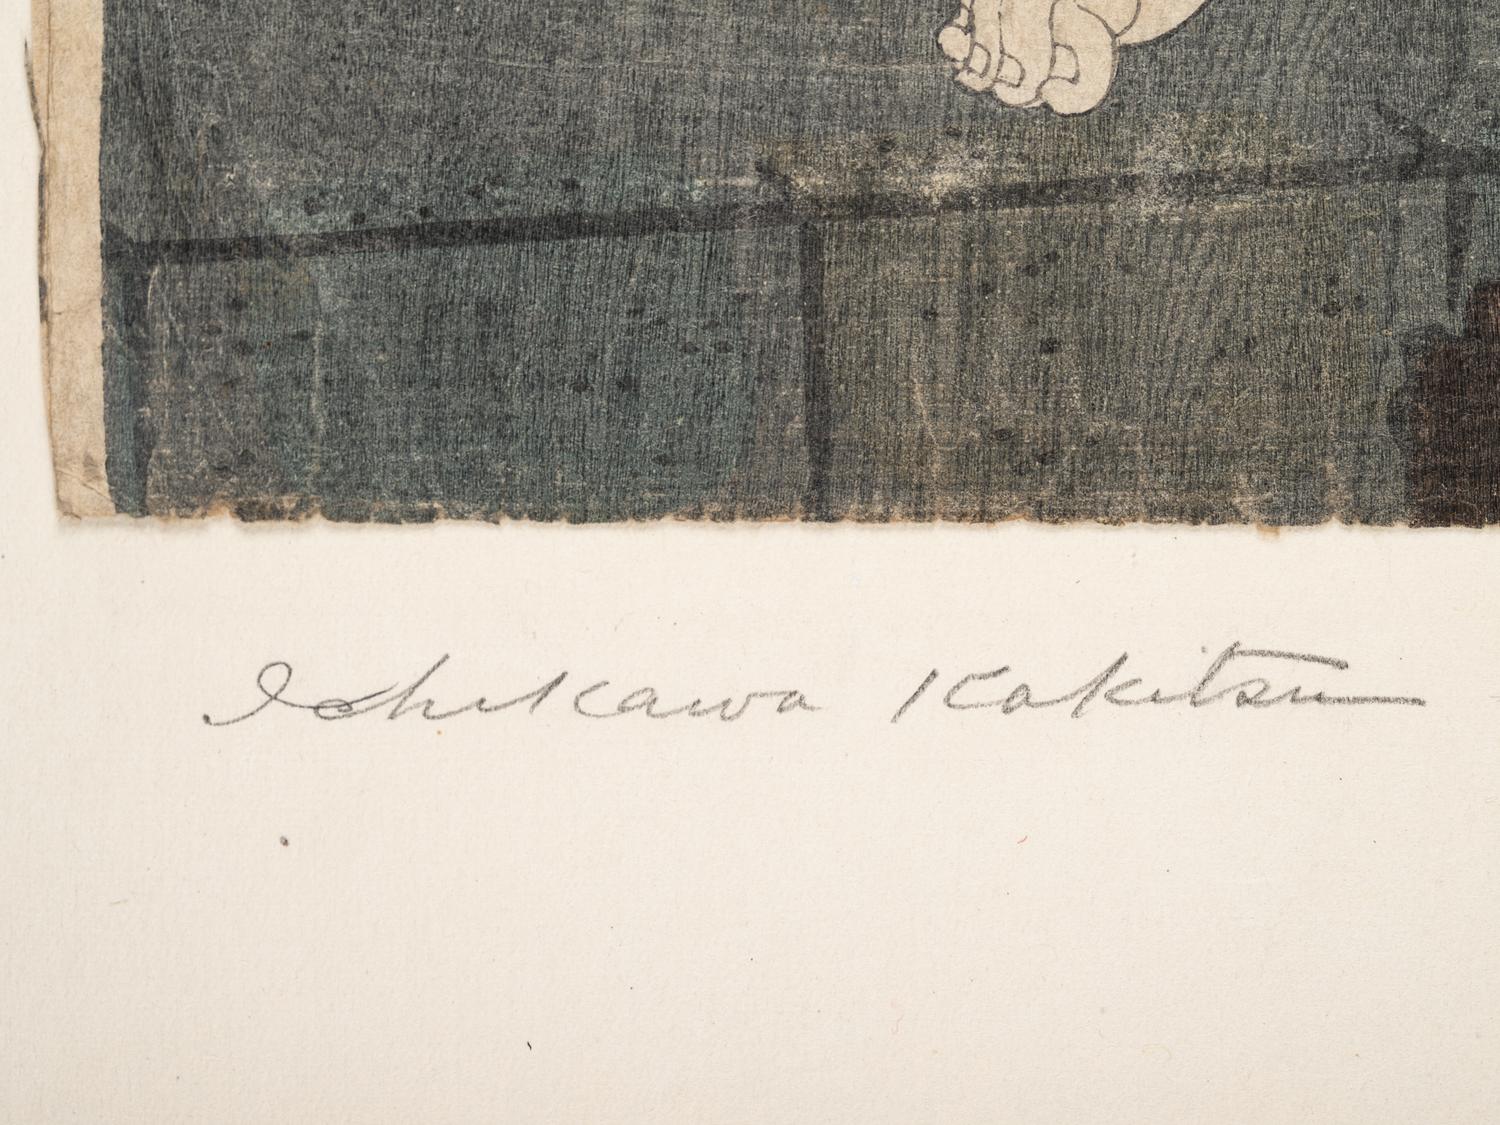 Ishikawa Kakitsu